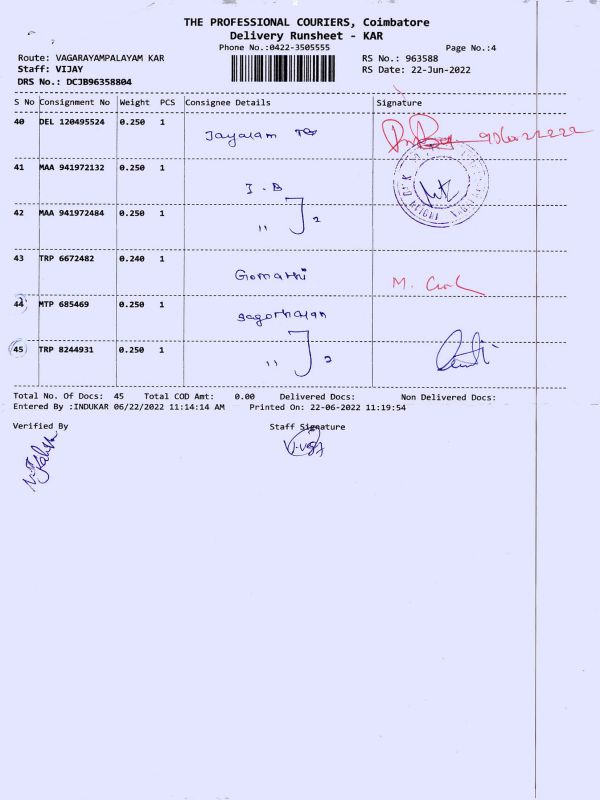 THE PROFESSIONAL COURIERS, Coimbatore
Delivery Runsheet - KAR
Phone No.:0422-3505555
Page No.:4
Route: VAGARAYAMPALAYAM KAR
RS No.: 963588
Staff: VIJAY
RS Date: 22-Jun-2022
DRS No.: DCJB96358804
S No Consignment No Weight PCS Consignee Details Signature
40 DEL 120495524 0.250 1
Jayalam
41 MAA 941972132 0.250 1
I.B
42 MAA 941972484 0.250 1
" 2
43 TRP 6672482 0.240 1
Gomathi
M.
44 MTP 685469 0.250 1
45 TRP 8244931 0.250 1
" 2
Total No. Of Docs: 45 Total COD Amt: 0.00 Delivered Docs: Non Delivered Docs:
Entered By :INDUKAR 06/22/2022 11:14:14 AM Printed On: 22-06-2022 11:19:54
Verified By Staff Signature